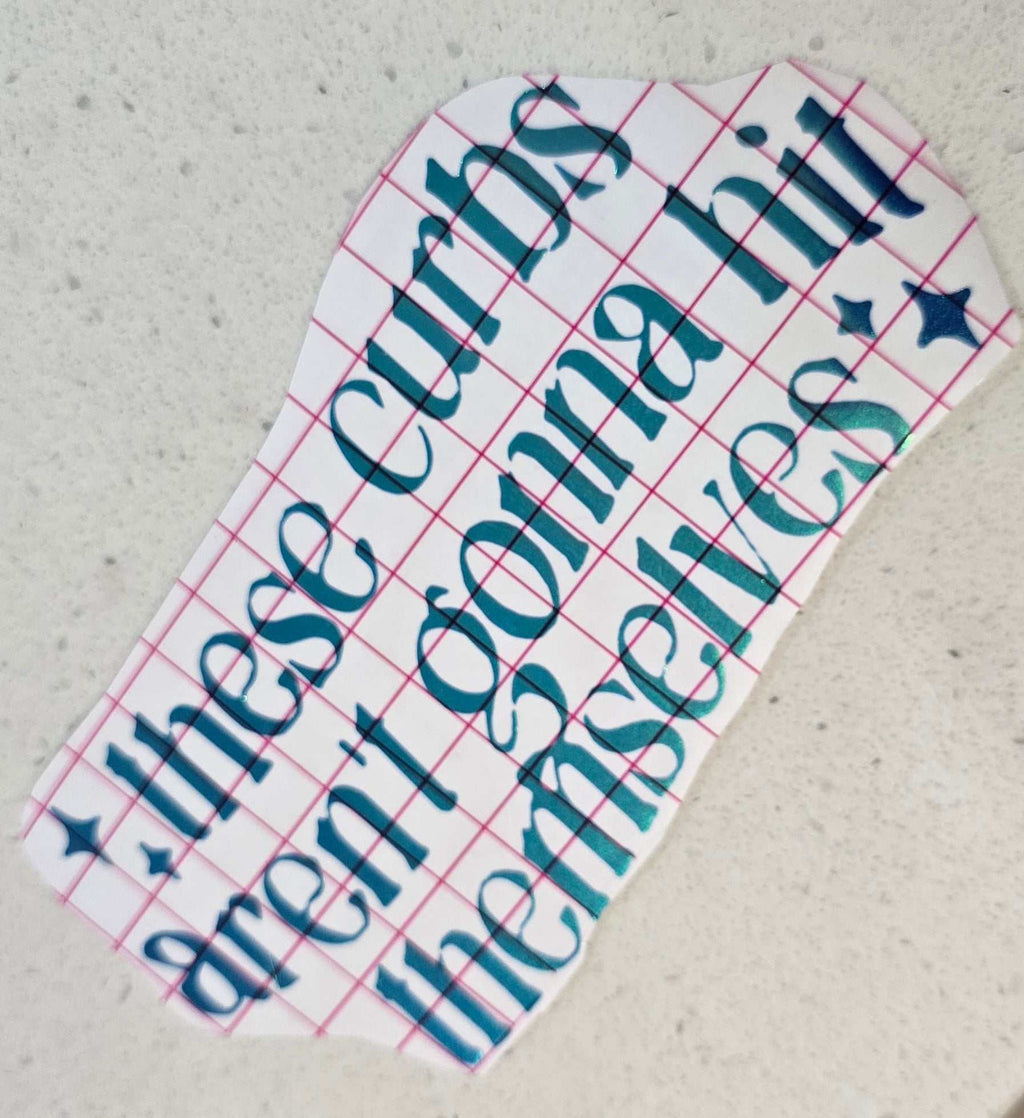 these curbs
aren't gonna hit
themselves